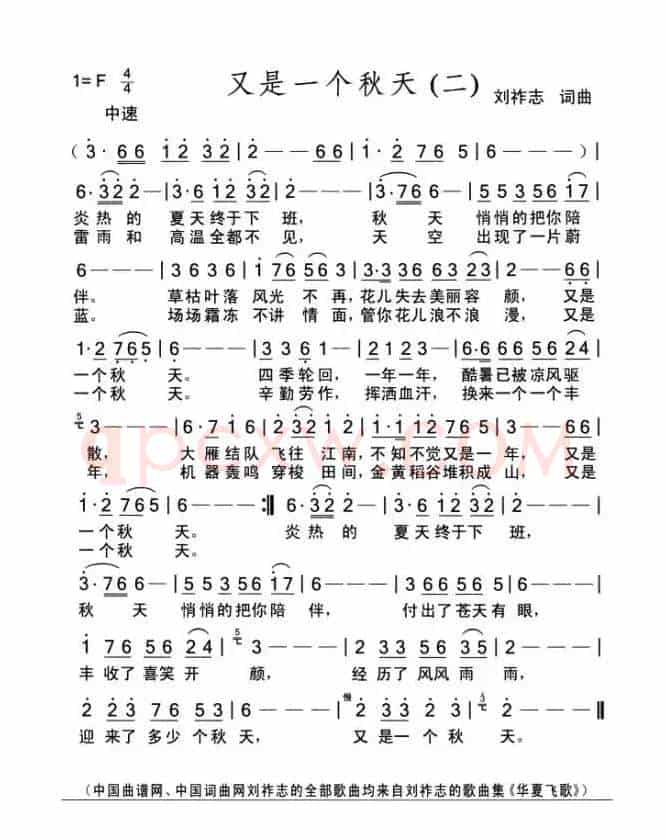 1= F 4/4 又是一个秋天(二) 刘祚志 词曲
中速
( 3· 66 12 32 | 2 – – 66 | 1· 2 76 5 | 6 – – – ) |
6· 32 2 – | 3· 6 12 32 | 2 – – – | 3· 76 6 – | 55 35 56 17 |
炎热的 夏天终于下 班, 秋 天 悄悄的把你陪
雷雨和 高温全都不 见, 天 空 出现了一片蔚
6 – – – | 36 36 | 1 76 56 3 | 3·3 36 63 23 | 2 – – 66 |
伴。 草枯叶落 风光 不 再,花儿失去美丽容 颜, 又是
蓝。 场场霜冻 不讲 情 面,管你花儿浪不浪 漫, 又是
1· 2 765 | 6 – – – | 33 6 1 – | 21 23 – | 6·6 66 56 51 |
一个秋 天。 四季轮回, 一年一年, 酷暑已被凉风驱
一个秋 天。 辛勤劳作, 挥洒血汗, 换来一个一个丰
5 3 – – – | 6· 7 1 6 | 2 32 1 2 | 1·1 12 76 56 | 3 – – 22 |
散, 大雁结队 飞往 江南,不知不觉又是一 年, 又是
年, 机器轰鸣 穿梭 田间,金黄稻谷堆积成 山, 又是
1· 2 765 | 6 – – – :‖ 6· 32 2 – | 3· 6 12 32 | 2 – – – |
一个秋 天。 炎热的 夏天终于下 班,
一个秋 天。
3· 76 6 – | 55 35 56 17 | 6 – – – | 36 66 56 5 | 3 – – – |
秋 天 悄悄的把你陪 伴, 付出了苍天有 眼,
1 76 56 24 | 5 3 – – – | 2 33 23 5 | 6 – – – |
丰 收了 喜笑 开 颜, 经 历了 风风 雨 雨,
2 23 76 53 | 6 – – – | 慢 2 33 23 1 | 5 2 – – – ‖
迎 来了 多少 个秋 天, 又 是一 个秋 天。
(中国曲谱网、中国词曲网刘祚志的全部歌曲均来自刘祚志的歌曲集《华夏飞歌》)
qpcxw.COM